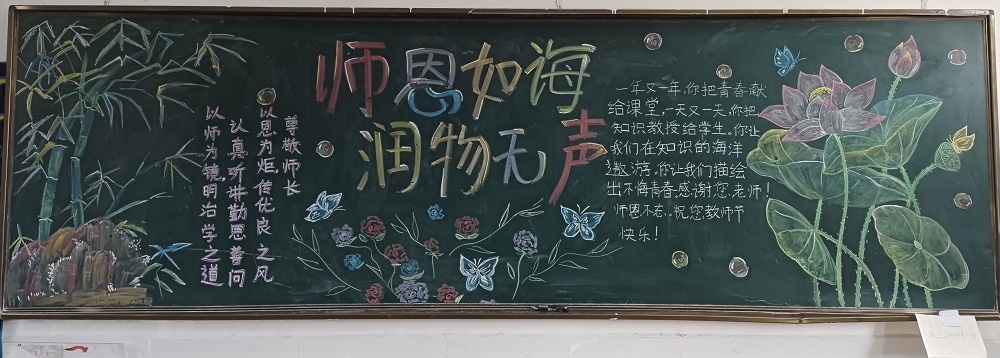 师恩如海
润物无声
尊敬师长
以恩为炬，传优良之风
认真听讲勤思善问
以师为镜，明治学之道
一年又一年，你把青春献
给课堂，一天又一天，你把
知识教授给学生。你让
我们在知识的海洋
遨游，你让我们描绘
出不悔青春，感谢您，老师！
师恩不老，祝您教师节
快乐！